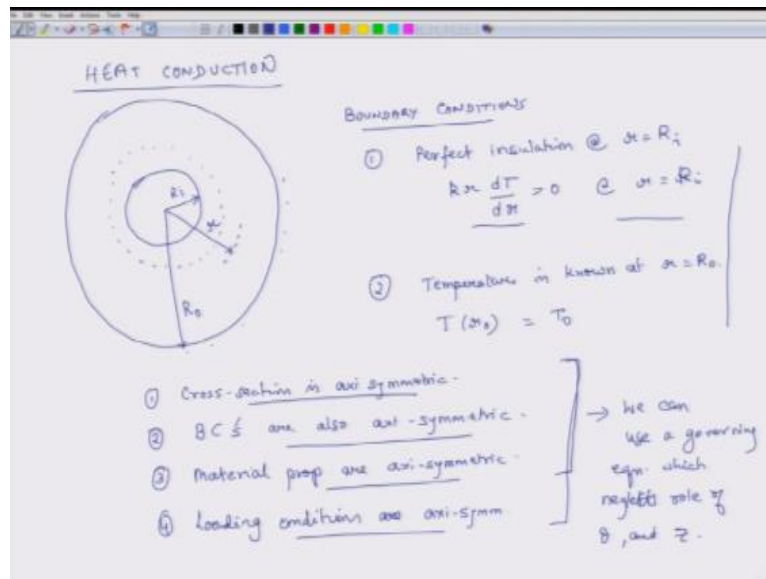 HEAT CONDUCTION
Ri
r
Ro
BOUNDARY CONDITIONS
① Perfect insulation @ r = Ri
kr dT/dr = 0 @ r = Ri
② Temperature is known at r = Ro
T(ro) = To
① Cross-section is axi symmetric.
② BC's are also axi-symmetric.
③ Material prop are axi-symmetric.
④ Loading conditions are axi-symm
→ We can
use a governing
eqn. which
neglects role of
θ, and z.